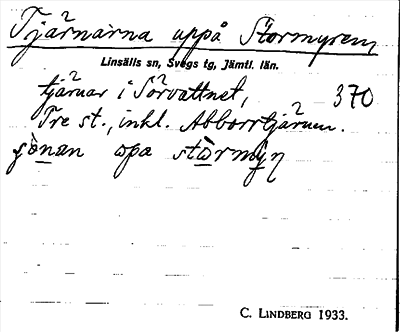 Tjärnarna uppå Stormyren
Linsälls sn, Svegs tg, Jämtl. län.
tjärnar i Sörvattnet, 370
Tre st., inkl. Abborrtjärnen.
opa
C. LINDBERG 1933.